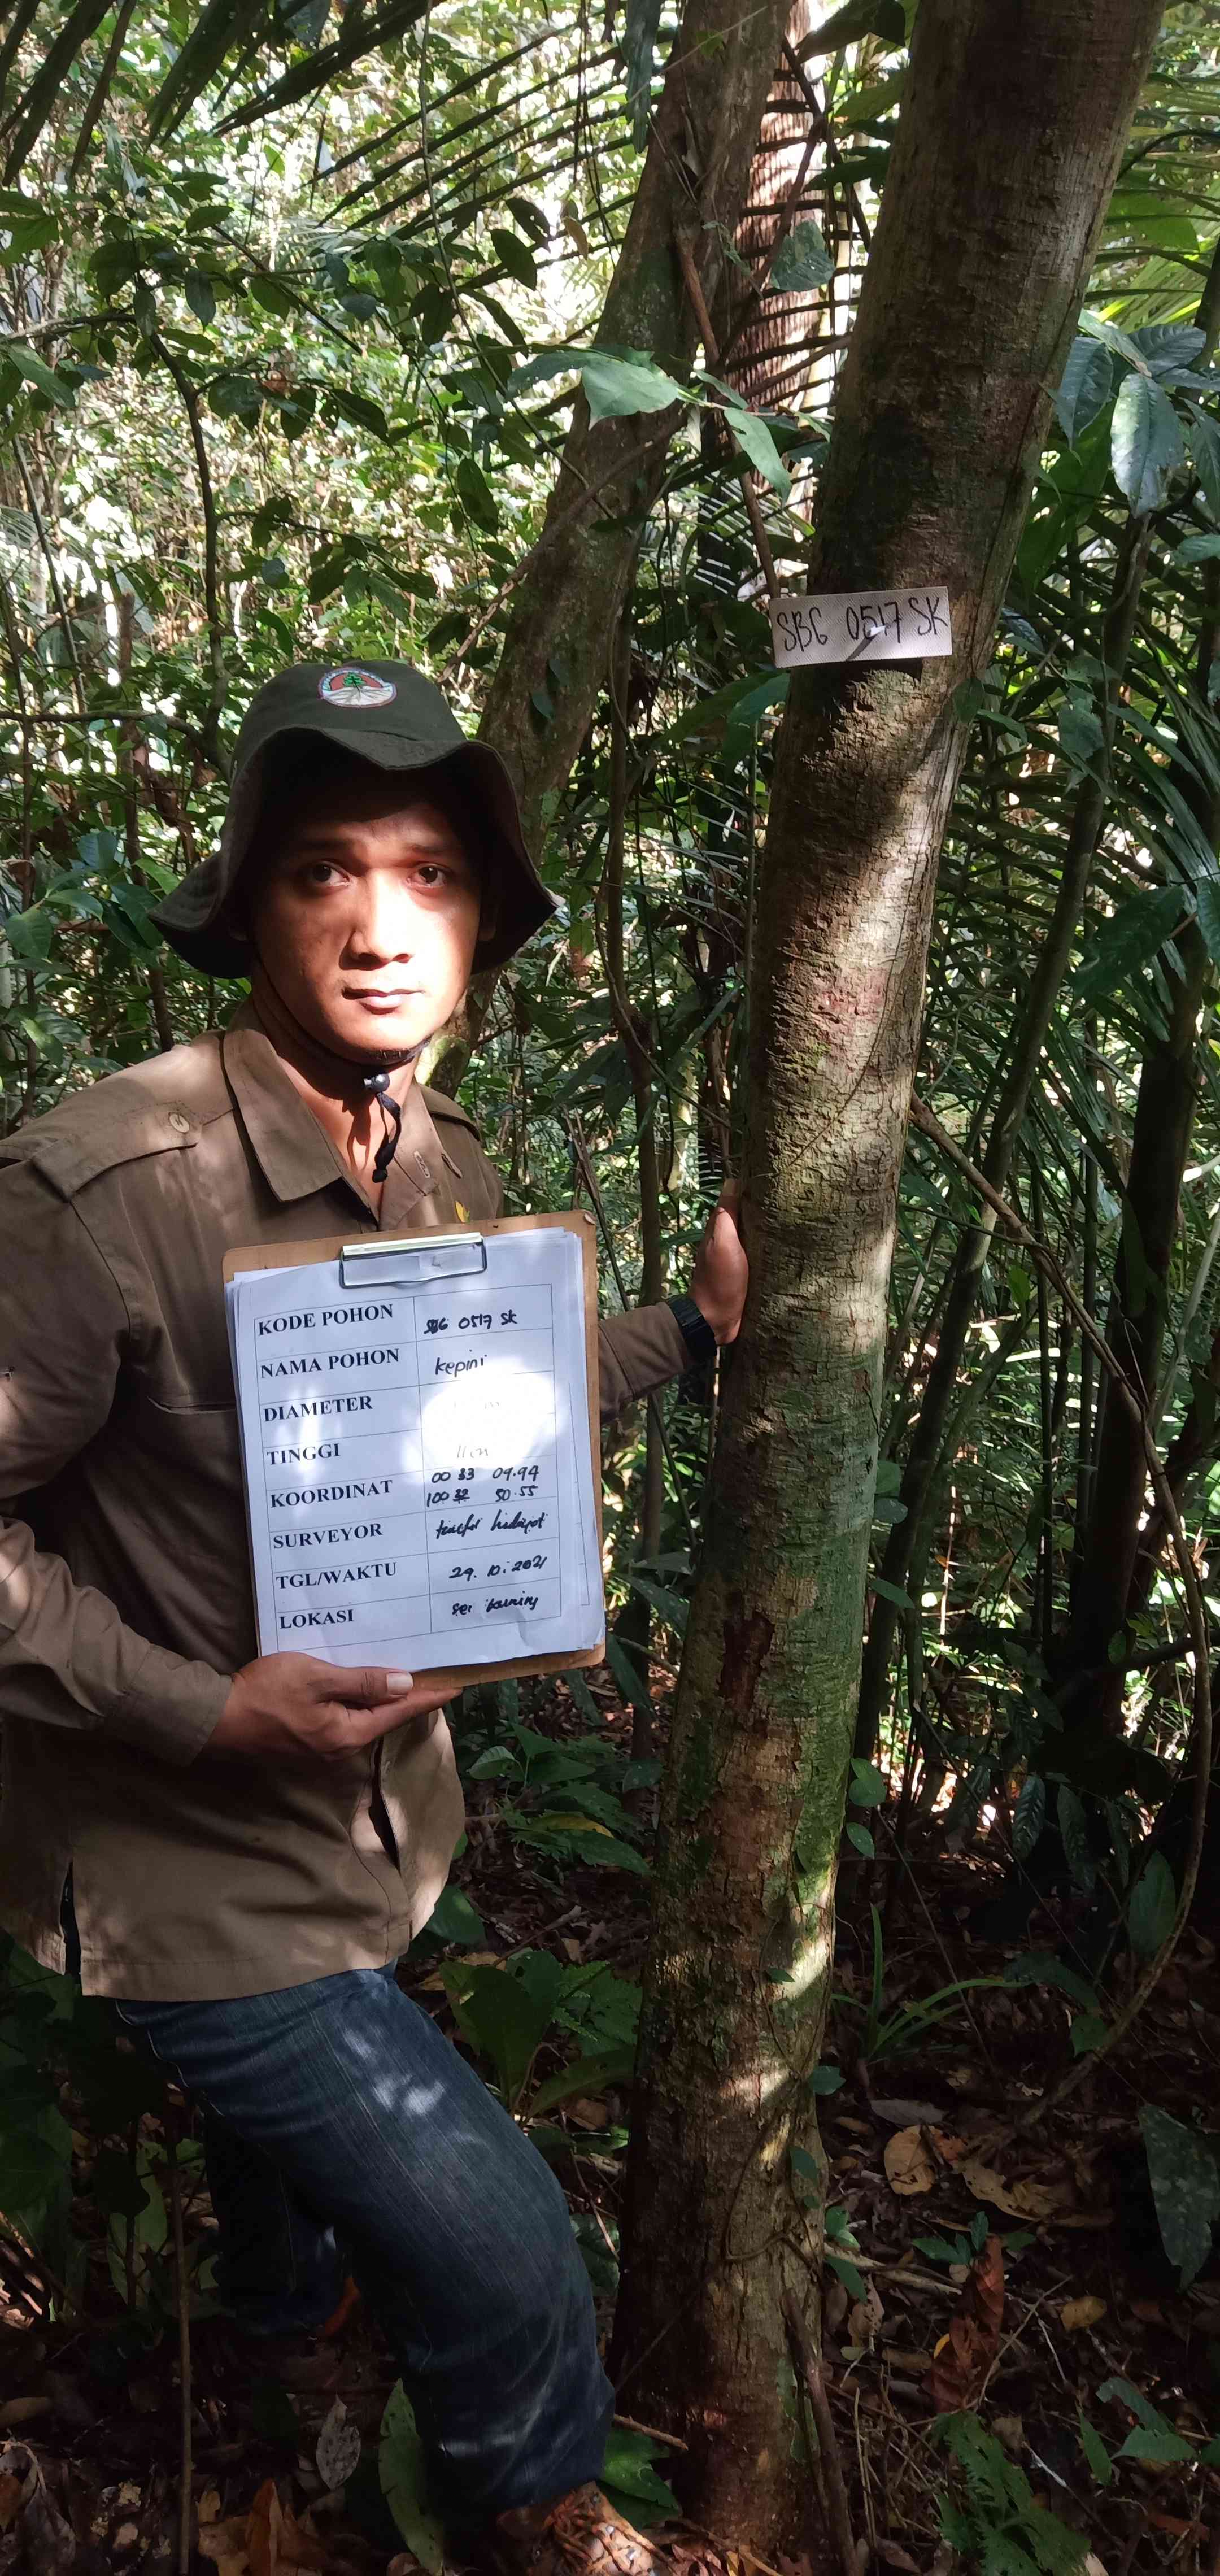 SBG 0517 SK
KODE POHON SBG 0517 SK
NAMA POHON kepini
DIAMETER
TINGGI 11 m
KOORDINAT 00 33 09.94
100 32 50.55
SURVEYOR
TGL/WAKTU 29.10.2021
LOKASI sei